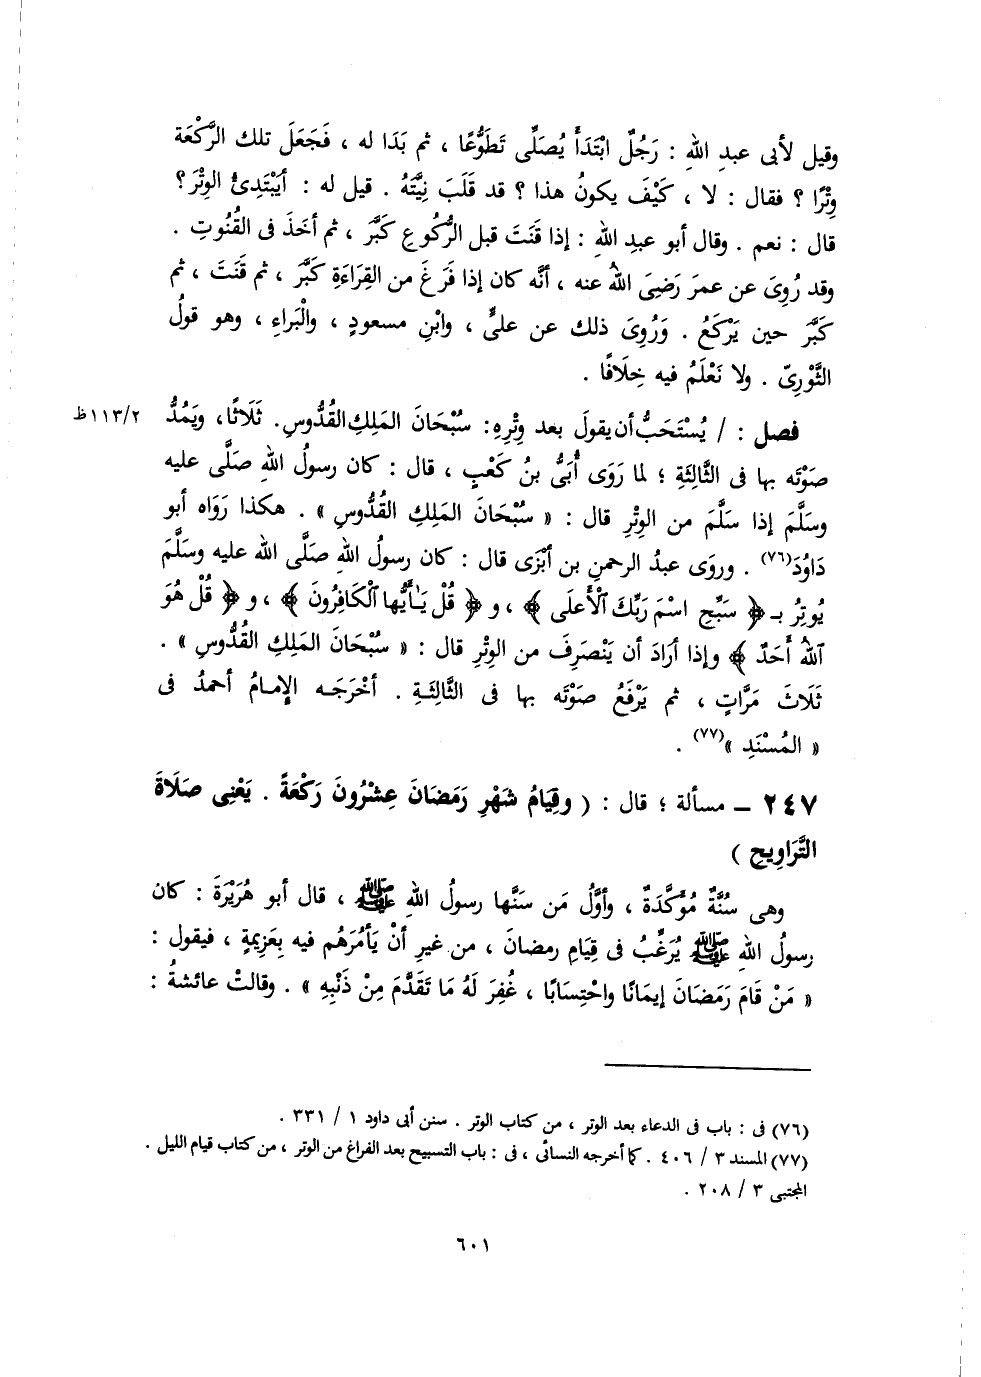 وقيل لأبى عبدِ اللهِ : رَجُلٌ ابْتَدَأَ يُصَلِّى تَطَوُّعًا ، ثم بَدَا له ، فَجَعَلَ تلك الرَّكْعَة
وِتْرًا ؟ فقال : لا ، كَيْفَ يكونُ هذا ؟ قد قَلَبَ نِيَّتَهُ . قيل له : أيَبْتَدِئُ الوِتْرَ ؟
قال : نعم . وقال أبو عبدِ اللهِ : إذا قَنَتَ قبل الرُّكُوعِ كَبَّرَ ، ثم أخَذَ فى القُنُوتِ .
وقد رُوِىَ عن عمرَ رَضِىَ اللهُ عنه ، أنَّه كان إذا فَرَغَ من القِرَاءَةِ كَبَّرَ ، ثم قَنَتَ ، ثم
كَبَّرَ حين يَرْكَعُ . وَرُوِىَ ذلك عن علىٍّ ، وابْنِ مسعودٍ ، والْبَراءِ ، وهو قولُ
الثَّوْرِىّ . ولا نَعْلَمُ فيه خِلَافًا .
فصل : / يُسْتَحَبُّ أن يقولَ بعد وِتْرِهِ: سُبْحَانَ المَلِكِ القُدُّوسِ. ثَلَاثًا، ويَمُدُّ ١١٣/٢ظ
صَوْتَه بها فى الثَّالِثَةِ ؛ لما رَوَى أُبَىُّ بنُ كَعْبٍ ، قال : كان رسولُ اللهِ صَلَّى عليه
وسَلَّمَ إذا سَلَّمَ من الوِتْرِ قال : « سُبْحَانَ المَلِكِ القُدُّوسِ » . هكذا رَوَاه أبو
دَاوُدَ(٧٦) . وروَى عبدُ الرحمنِ بن أبْزَى قال : كان رسولُ اللهِ صَلَّى اللهُ عليه وسَلَّمَ
يُوتِرُ بـ ﴿ سَبِّحِ اسْمَ رَبِّكَ الْأَعلَى ﴾ ، و ﴿ قُلْ يَٰأَيُّها الْكَافِرُونَ ﴾ ، و ﴿ قُلْ هُوَ
ٱللهُ أَحَدٌ ﴾ وإذا أرَادَ أن يَنْصَرِفَ من الوِتْرِ قال : « سُبْحَانَ المَلِكِ القُدُّوسِ » .
ثَلَاثَ مَرَّاتٍ ، ثم يَرْفَعُ صَوْتَه بها فى الثَّالِثَـةِ . أخْرَجَـه الإمـامُ أحمدُ فى
« المُسْنَدِ »(٧٧) .
٢٤٧ ــ مسألة ؛ قال : ( وقِيَامُ شَهْرِ رَمَضَانَ عِشْرُونَ رَكْعَةً . يَعْنِى صَلَاةَ
التَّرَاوِيحِ )
وهى سُنَّةٌ مُؤَكَّدَةٌ ، وأوَّلُ مَن سَنَّها رسولُ اللهِ ﷺ ، قال أبو هُرَيْرَةَ : كان
رسولُ اللهِ ﷺ يُرَغِّبُ فى قِيَامِ رمضانَ ، من غيرِ أنْ يَأمُرَهُم فيه بِعَزِيمةٍ ، فيقول :
« مَنْ قَامَ رَمَضَانَ إيمَانًا واحْتِسَابًا ، غُفِرَ لَهُ مَا تَقَدَّمَ مِنْ ذَنْبِهِ » . وقالتْ عائشةُ :
(٧٦) فى : باب فى الدعاء بعد الوتر ، من كتاب الوتر . سنن أبى داود ١ / ٣٣١ .
(٧٧) المسند ٣ / ٤٠٦ . كما أخرجه النسائى ، فى : باب التسبيح بعد الفراغ من الوتر ، من كتاب قيام الليل .
المجتبى ٣ / ٢٠٨ .
٦٠١